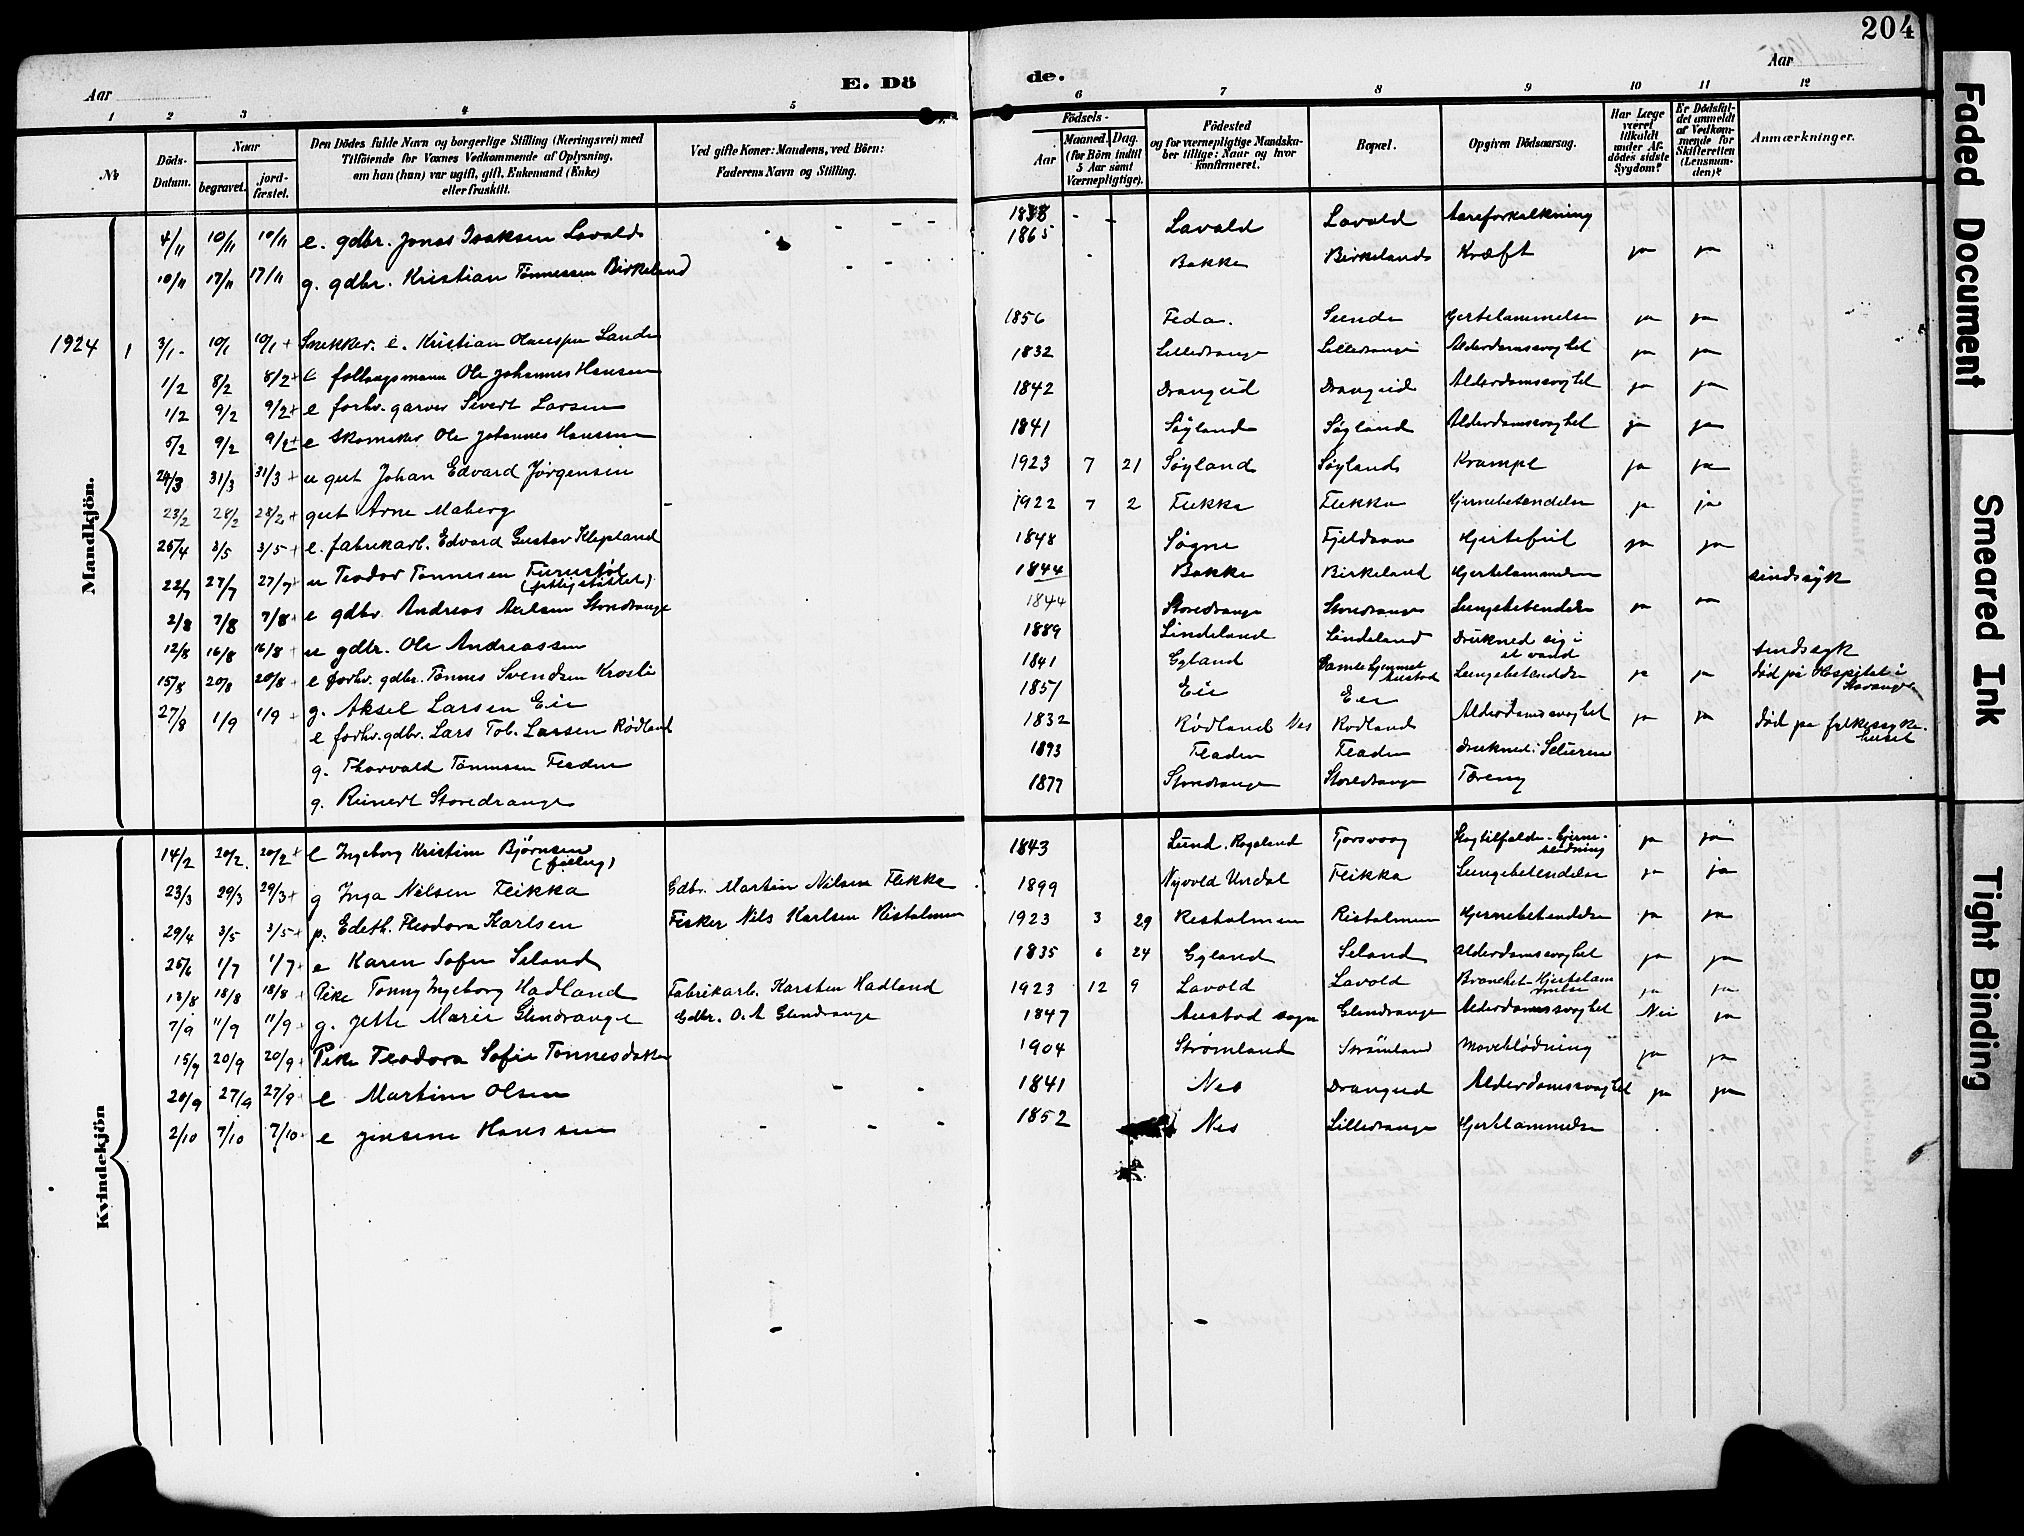 204
Aar
E. Dö
de.
Aar
1 2 3 4 5 6 7 8 9 10 11 12
№
Döds-Datum.
Naar
begravet.
jord-fæstet.
Den Dödes fulde Navn og borgerlige Stilling (Næringsvei) med
Tilföiende for Voxnes Vedkommende af Oplysning,
om han (hun) var ugift, gift, Enkemand (Enke)
eller fraskilt.
Ved gifte Koner: Mandens, ved Börn:
Faderens Navn og Stilling.
Födsels-
Aar
Maaned. Dag.
(for Börn indtil
5 Aar samt
Værnepligtige).
Födested
og for værnepligtige Mandska-
ber tillige: Naar og hvor
konfirmeret.
Bopæl.
Opgiven Dödsaarsag.
Har Læge
været
tilkaldt
under Af-
dödes sidste
Sygdom?
Er Dödsfal-
det anmeldt
af Vedkom-
mende for
Skifteretten
(Lensman-
den)?
Anmærkninger.
Mandkjön.
4/11 10/11 10/11 e. gdbr. Jonas Isaksen Lavold 18 Lavold Lavold Aareforkalkning
10/11 17/11 17/11 g. gdbr. Kristian Tønnessen Birkeland 1865 Bakke Birkeland Kræft ja ja
1924 1 3/1 10/1 10/1 + Snekker. e. Kristian Sande 1856 Feda. Sande Hjertelammelse ja ja
1/2 8/2 8/2 + e Ole Johannes Hansen 1832 Lilledrange Lilledrange Alderdomssvaghet ja ja
1/2 9/2 9/2 + e forhv. garver Sivert Larsen 1842 Drangeid Drangeid Alderdomssvaghet ja ja
5/2 9/2 9/2 + e Skomaker Ole Johannes Hanssen 1841 Søyland Søyland Alderdomssvaghet ja ja
24/3 31/3 31/3 + u gut Johan Edvard Jørgensen 1923 7 21 Søyland Søyland Krampe ja ja
23/2 28/2 28/2 + gut Arne Maberg 1922 7 2 Flikka Flikka Hjernebetændelse ja ja
25/4 3/5 3/5 + e. fabrikarb. Edvard Gustav Klepland 1848 Søgne Hjertefeil ja ja
22/7 27/7 27/7 + u Teodor Tønnesen 1844 Bakke Birkeland Hjertelammelse sindssyk
2/8 7/8 7/8 + e gdbr. Andreas Storedrange 1844 Storedrange Storedrange Lungebetændelse ja ja
12/8 16/8 16/8 + u gdbr. Ole Andreassen 1889 Lindeland Lindeland Drukned sig i et vand sindssyk
15/8 20/8 20/8 + e forhv. gdbr. Tønnes Svendsen 1841 Egland Gamlehjemmet Austad Lungebetændelse ja ja død på Hospitalet i Stavanger
27/8 1/9 1/9 + g. Aksel Larsen Eie 1851 Eie Eie
e forhv. gdbr. Lars Tob. Larsen Rødland 1832 Rødland Nes Rødland Alderdomssvaghet ja ja død pa fylkessyke-huset
g. Thorvald Tønnesen Fladen 1893 Fladen Fladen Druknet i
g. Reinert Storedrange 1877 Storedrange Storedrange Tæring
Kvindekjön
14/2 20/2 20/2 + e Ingeborg Kristine Bjørnsen 1843 Lund, Rogaland Tjorsvaag Slagtilfælde-hjerne-blødning ja ja
23/3 29/3 29/3 + g Inga Nilsen Flikka Gdbr. Martin Nilsen Flikka 1899 Nyvold Undal Flikka Lungebetændelse ja ja
29/4 3/5 3/5 + p. Edith Teodora Karlsen Fisker Nils Karlsen Ristolmen 1923 3 29 Ristolmen Ristolmen Hjernebetændelse ja ja
25/6 1/7 1/7 + e Karen Sofie Seland 1835 6 24 Egland Seland Alderdomssvaghet ja ja
13/8 18/8 18/8 + Pike Tonny Ingeborg Hadland Fabrikarb. Karsten Hadland 1923 12 9 Lavold Lavold Bronchit-Hjertelammelse ja ja
7/9 11/9 11/9 + g. Jette Marie Glendrange Gdbr. O. A Glendrange 1847 Austad sogn Glendrange Alderdomssvaghet Nei ja
15/9 20/9 20/9 + Pike Teodora Sofie Tønnesdatter 1904 Strømland Strømland Maveblødning ja ja
20/9 27/9 27/9 + e Martine Olsen 1841 Nes Drangeid Alderdomssvaghet ja ja
2/10 7/10 7/10 + e Jensine Hanssen 1852 Nes Lilledrange Hjertelammelse
Faded Document
Smeared Ink
Tight Binding